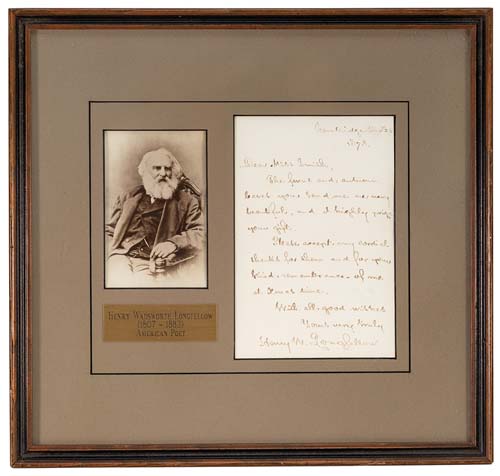 HENRY WADSWORTH LONGFELLOW
(1807 - 1882)
AMERICAN POET
Cambridge
1878.
Dear Miss Smith,
The fruit and autumn
leaves you send me are very
beautiful, and I highly prize
your gift.
Please accept my cordial
thanks for them and for your
kind remembrance of me
at Xmas time.
With all good wishes
Yours very truly
Henry W. Longfellow